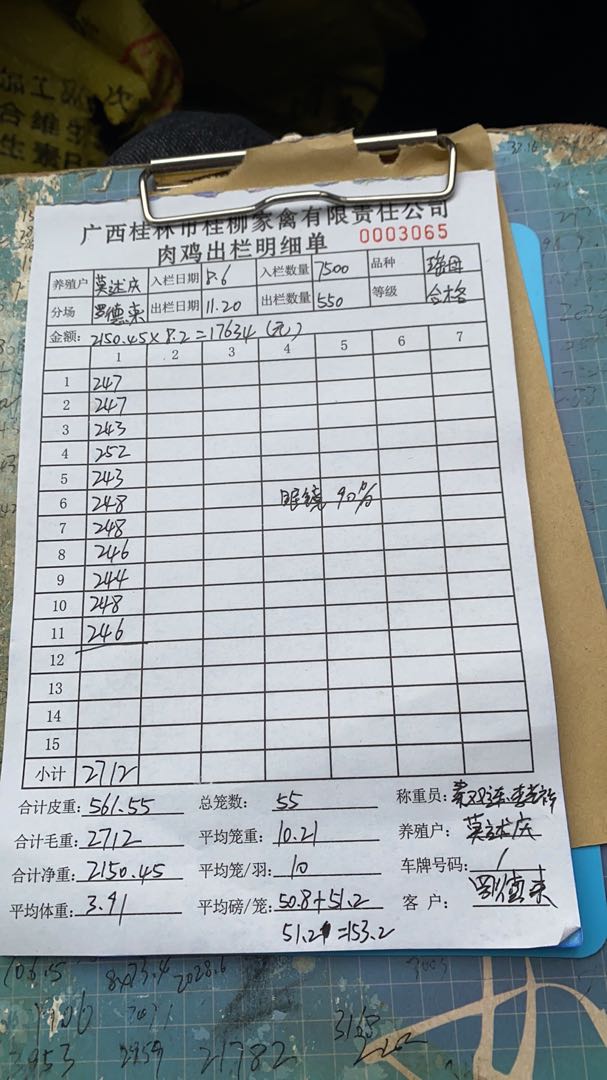 广西桂林市桂柳家禽有限责任公司
肉鸡出栏明细单 0003065
养殖户 莫述庆 入栏日期 8.6 入栏数量 7500 品种 瑶母
分场 罗德来 出栏日期 11.20 出栏数量 550 等级 合格
金额: 2150.45×8.2=17634(元)
1 2 3 4 5 6 7
1 247
2 247
3 243
4 252
5 243
6 248 眼镜 90%
7 248
8 246
9 244
10 248
11 246
12
13
14
15
小计 2712
合计皮重: 561.55 总笼数: 55 称重员:
合计毛重: 2712 平均笼重: 10.21 养殖户: 莫述庆
合计净重: 2150.45 平均笼/羽: 10 车牌号码: /
平均体重: 3.91 平均磅/笼: 50.8+51.2 客户: 罗德来
51.2 =153.2